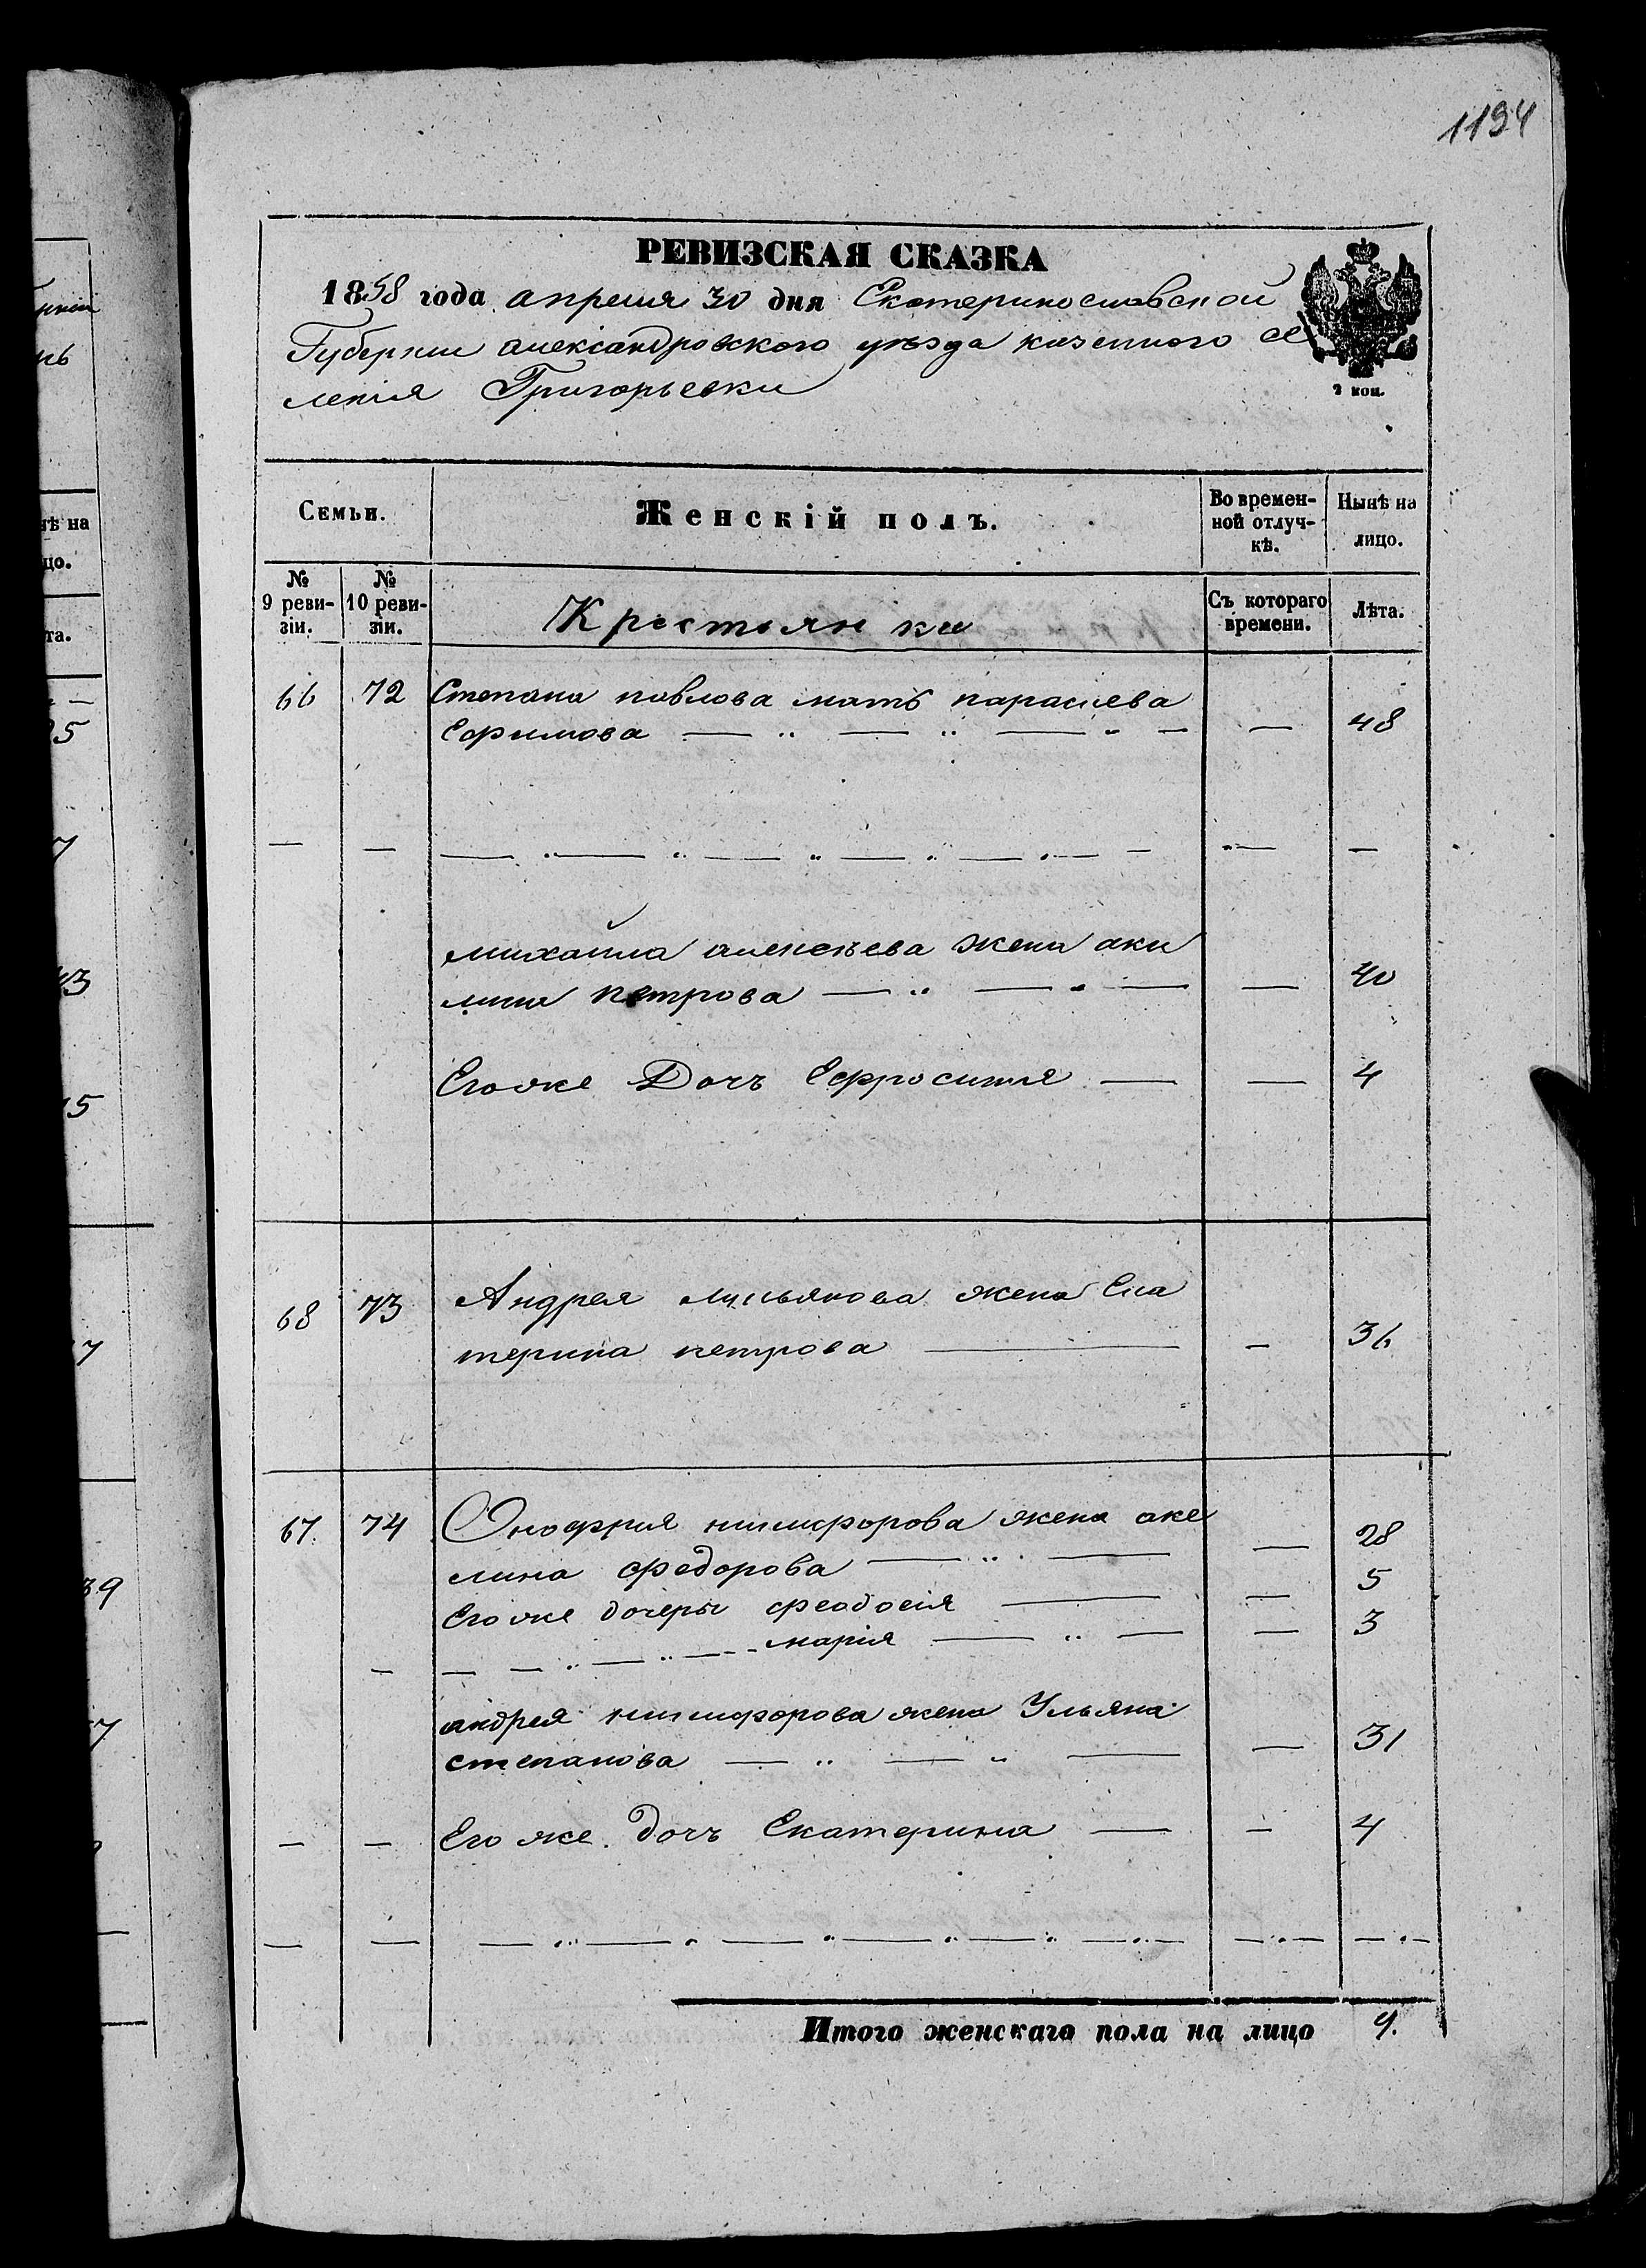 1194
РЕВИЗСКАЯ СКАЗКА
1858 года апреля 30 дня Екатеринославской
Губернии александровского уѣзда казенного се
ленія Григорьевки
2 коп.
Семьи.
Женскій полъ.
Во времен-
ной отлуч-
кѣ.
Нынѣ на
лицо.
№
9 реви-
зіи.
№
10 реви-
зіи.
Крестьянки
Съ котораго
времени.
Лѣта.
66 72 Степана павлова мать параскева
Ефимова — 48
михайла алексѣева жена аки
лина петрова — 40
Егоже Дочъ Ефросинія — 4
68 73 Андрея жена Ека
терина петрова — 36
67 74 Онофрия никифорова жена аке
лина федорова — 28
Егоже дочеры феодосія — 5
марія — 3
андрея никифорова жена Ульяна
степанова — 31
Егоже дочъ Екатерина — 4
Итого женскаго пола на лицо 9.